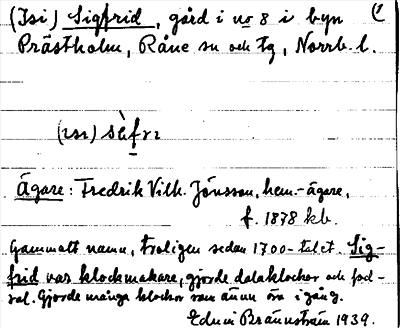 (Isi) Sigfrid, gård i no 8 i byn
Prästholm, Råne sn och tg, Norrb. l.
(ɪsɪ) sèfrɪ
Ägare: Fredrik Vilh. Jönsson, hem.-ägare,
f. 1878 kb.
Gammalt namn, troligen sedan 1700-talet. Sig-
frid var klockmakare, gjorde dalaklockor och fod-
ral. Gjorde många klockor som ännu äro i gång.
Edvin Brännström 1939.